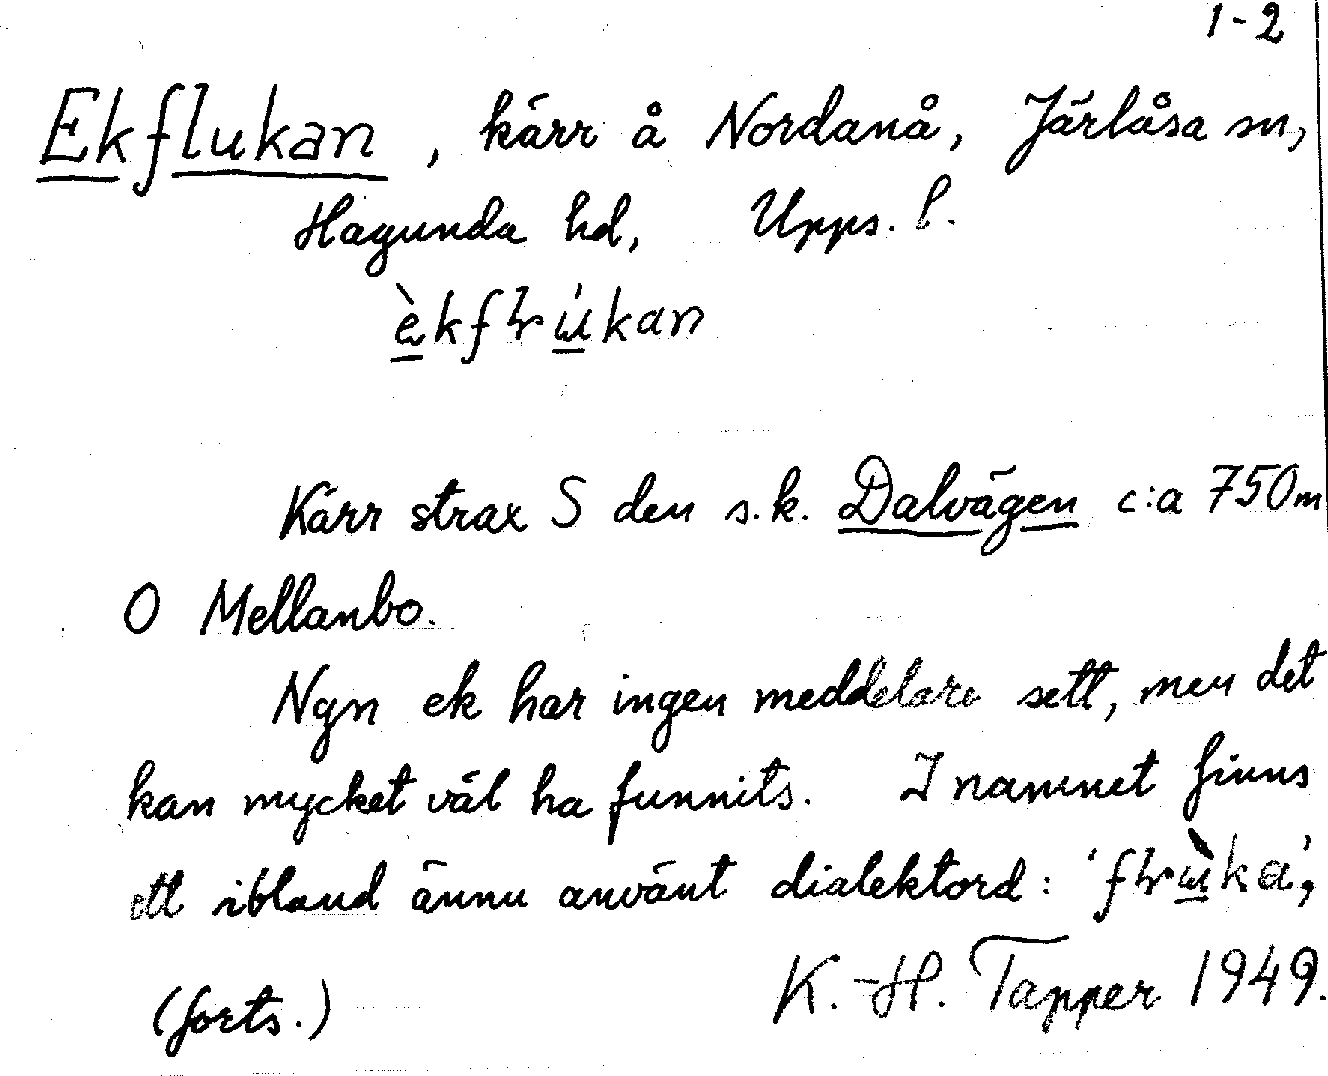 1-2
Ekflukan, kärr å Nordanå, Järlåsa sn,
Hagunda hd, Upps. l.
Kärr strax S den s.k. Dalvägen c:a 750m
O Mellanbo.
Ngn ek har ingen meddelare sett, men det
kan mycket väl ha funnits. I namnet finns
ett ibland ännu använt dialektord:
(forts.) K.-H. Tapper 1949.